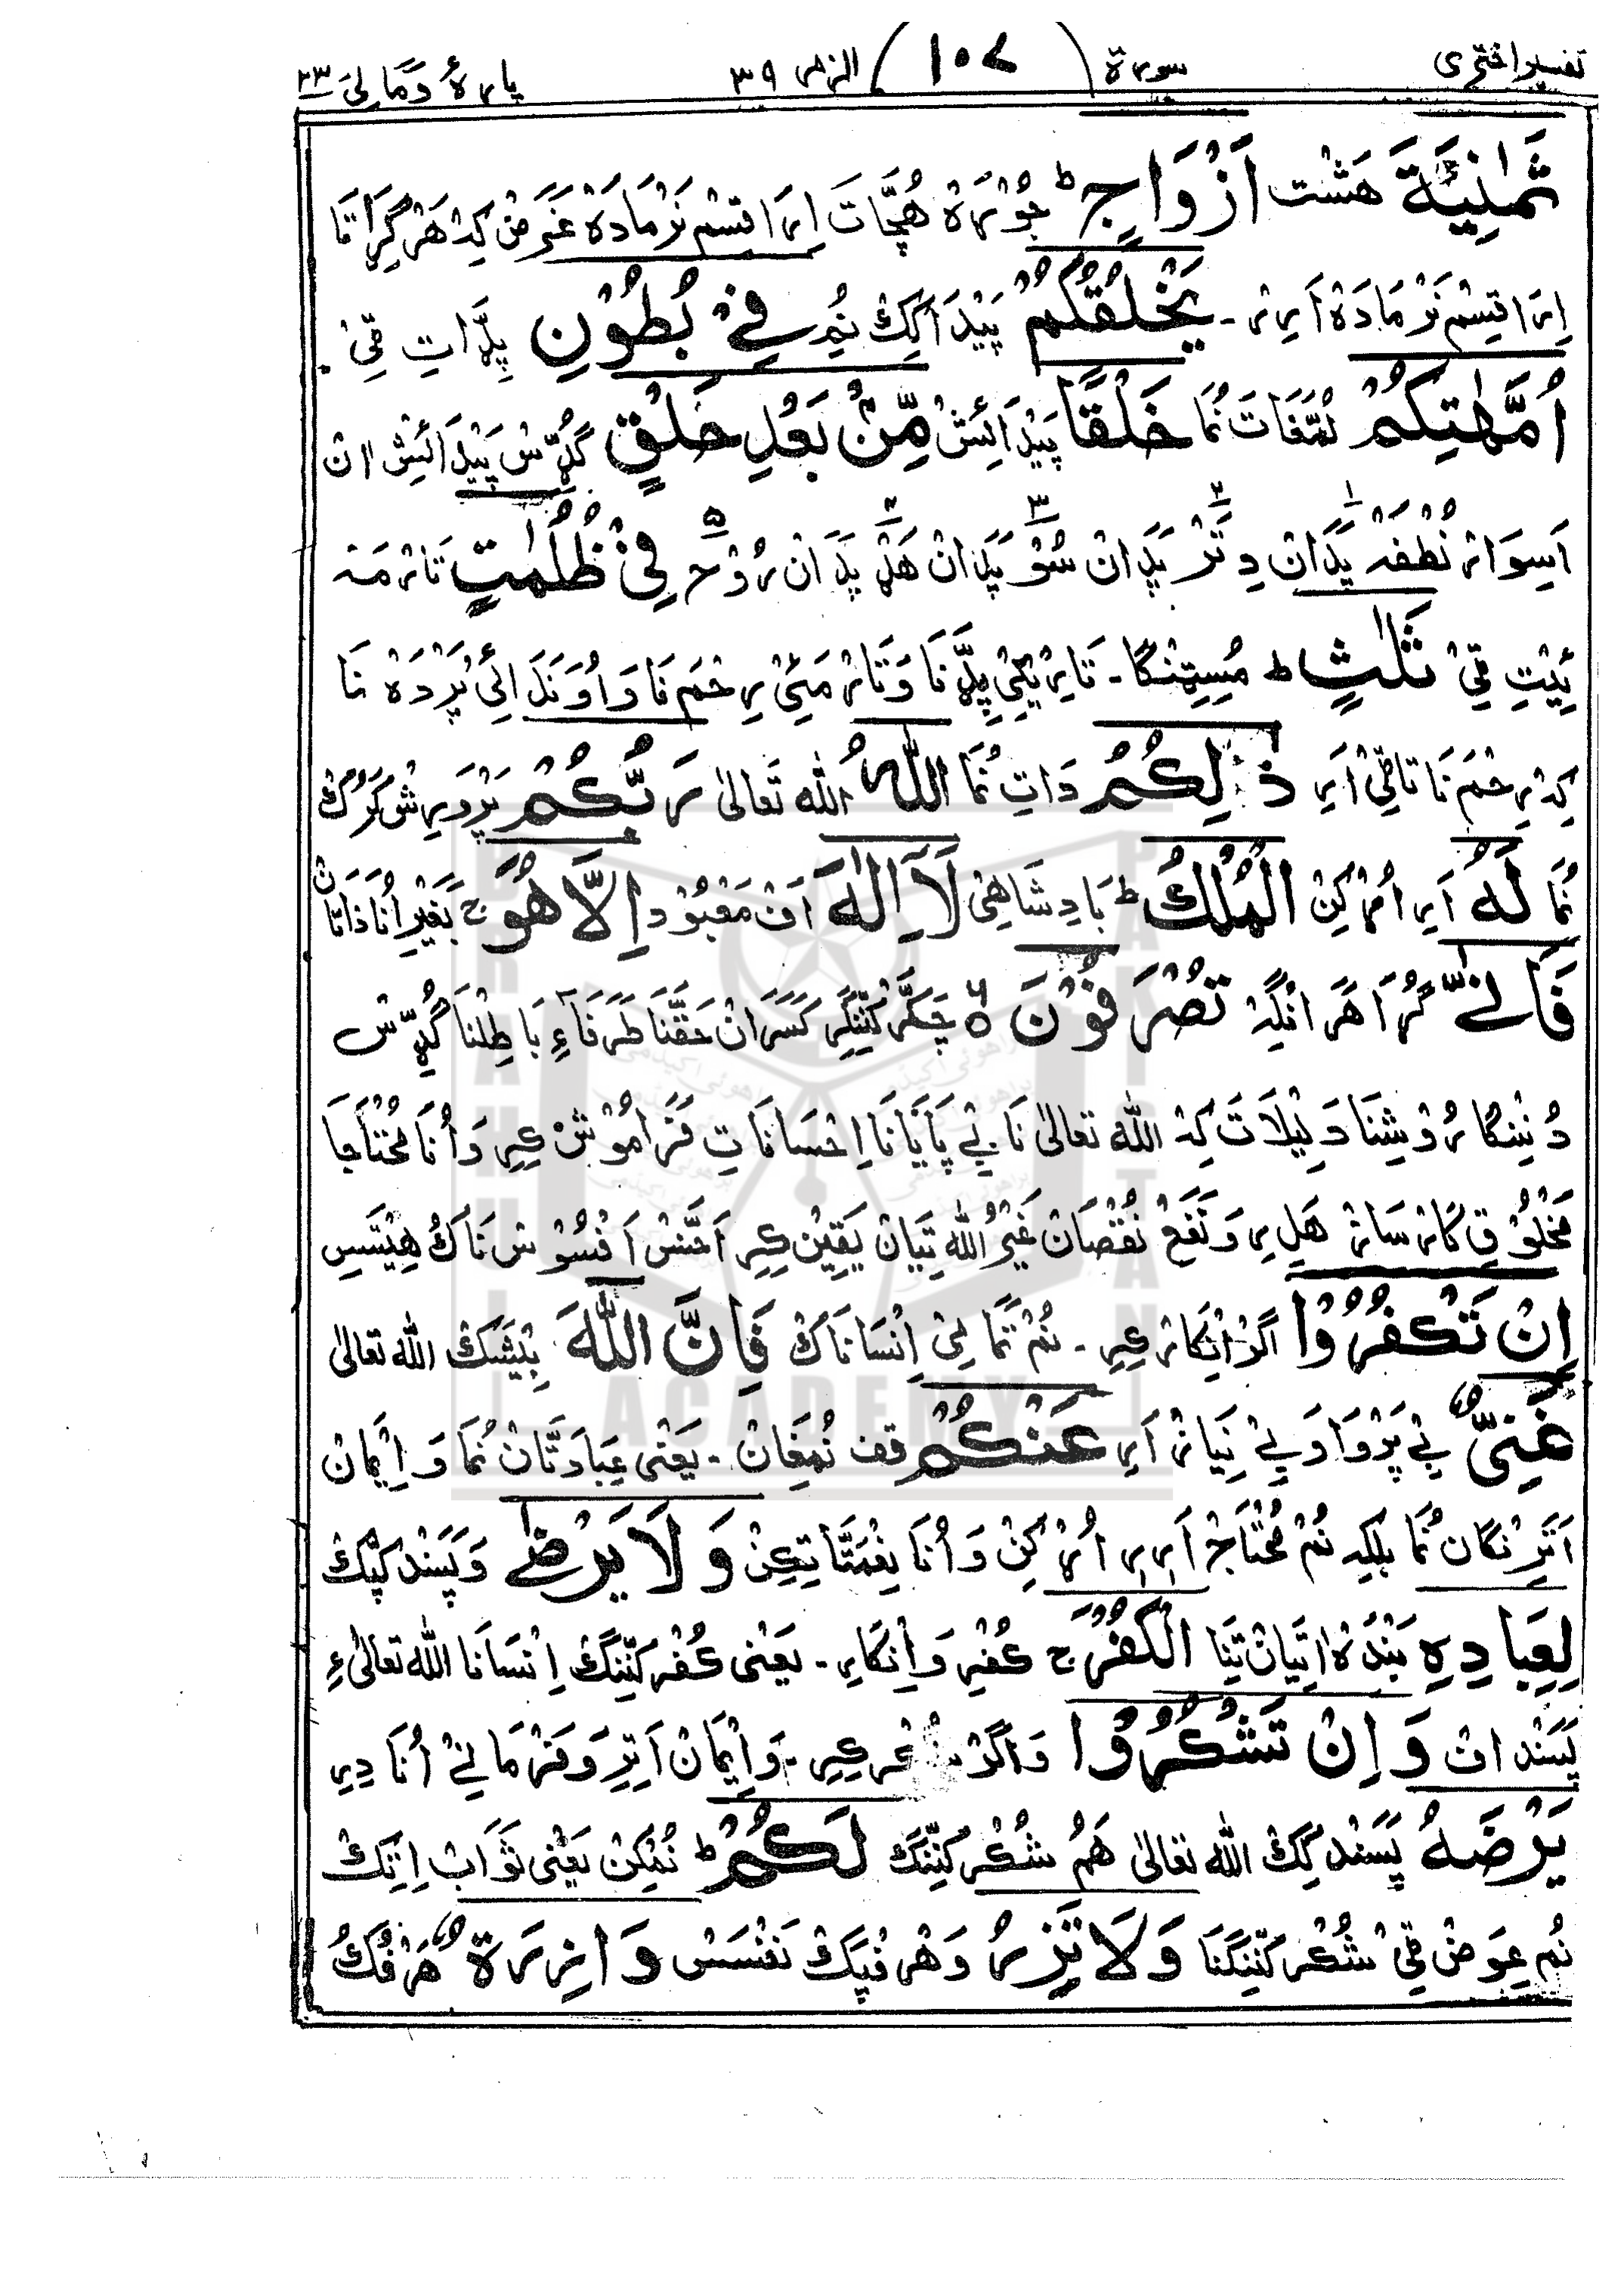 تفسیر اختری سورة (١٠٧) الزمر ٣٩ پارهٔ وَمَالِیَ ٢٣
ثَمٰنِيَةَ هَشْت اَزْوَاجٍ ط جوڑہ ھُچَّات اِرَا قِسْم نَرْ مَادَہ غَرَضْ کِہ ھَرْ گِرَاتَا
اِرَا قِسْم نَرْ مَادَہ اَرِیر۔ يَخْلُقُكُمْ پَیْدَا کِکْ نُمِ فِيْ بُطُوْنِ پِڈَّاتِ قِیْ
اُمَّهٰتِكُمْ لُمَّغَاتَ نُمَا خَلْقًا پَیْدَائِشْ مِّنْۢ بَعْدِ خَلْقٍ گُڈِّسْ پَیْدَائِشْ اَن
اَسِوَار نُطْفَہ پَدَانْ دِتَّرْ پَدَانْ سُوْ پَدَانْ هَڈْ پَدَانْ رُوْح فِيْ ظُلُمٰتٍ تَارْمَہ
ئِیْتِ قِیْ ثَلٰثٍ ط مُسِٹِنْگَا۔ تَارِیْکِیْ پِڈَّنَا وَ تَارْمَئِیْ رِحْمَ نَا وَ اُوَنَدَائِی پَرْدَہْ نَا
کِہ رِحْمَ نَا تَا قِیْ اَرِ ذٰلِكُمُ دَاتِ نُمَا اللّٰهُ اللّٰہ تَعَالٰی رَبُّكُمْ پَرْوَرِشْ کَرُکْ
نُمَا لَهُ اَرِ اُڑْکِنْ الْمُلْكُ ط بَادِشَاهِیْ لَآ اِلٰهَ اَفْ مَعْبُوْد اِلَّا هُوَ ج بَغَیْرِ اُنَا ذَاتَانْ
فَاَنّٰى گُڑَا هَرَانْگَہْ تُصْرَفُوْنَ ٦ چَکَّرْ کَنِّنْگِرِ کَسَرَانْ حَقَّنَا طَرَفَآءِ بَاطِلْنَا گُڈِّسْ
دُنِنْگَا رُوْشِنَا دَلِیْلَاتَ کِہ اللّٰہ تعالٰی نَا بے پَایَانَا اِحْسَانَاتِ فَرَامُوْش کِرِ وَ اُنَا مُحْتَاجَا
مَخْلُوْقِ کَارْسَازْ هَلِرِ وَ نَفَعْ نُقْصَانْ غَیْرُ اللّٰہ تِیَانْ یَقِیْن کِرِ اَحَّسْ اَفْسُوْس نَاکُ هِیْتَسِ
اِنْ تَكْفُرُوْا اَگَرْ اِنْکَار کِرِ۔ نُمْ تَمَا مِیْ اِنْسَانَاکْ فَاِنَّ اللّٰهَ بِیْشَکْ اللّٰہ تعالٰی
غَنِيٌّ بے پَرْوَا وَ بے نِیَاز اَرِ عَنْكُمْ قف نُمْغَانْ۔ یَعْنِی عِبَادَتَانْ نُمَا وَ اِیْمَانْ
اَتَرِنْگَانْ نُمَا بَلْکِہ نُمْ مُحْتَاجْ اَرِرِ اُڑْکِنْ وَ اُنَا نِعْمَتَّاتِکِنْ وَلَا يَرْضٰى وَ پَسَنْد کَپَّکْ
لِعِبَادِهِ بَنْدَہْ اتِیَانْ تَنَا الْكُفْرَ ج کُفْرِ وَ اِنْکَارِ۔ یَعْنِی کُفْر کَنِّنْگْ اِنْسَانَا اللّٰہ تعالٰیءِ
پَسَنْد اَفْ وَاِنْ تَشْكُرُوْا وَ اَگَرْ شُکْر کِرِ۔ وَ اِیْمَانْ اَتِرِ وَ فَرْمَانِے اُنَا دِرِ
يَرْضَهُ پَسَنْد کِکْ اللّٰہ تعالٰی هَمُ شُکْر کَنِّنْگْ لَكُمْ ط نُمْکِنْ یَعْنِی ثَوَابْ اِتِکْ
نُمِ عِوَضْ قِیْ شُکْر کَنِّنْگَنَا وَلَا تَزِرُ وَ هْرفَپَکْ نَفْسَسْ وَازِرَةٌ هَرْفُکْ